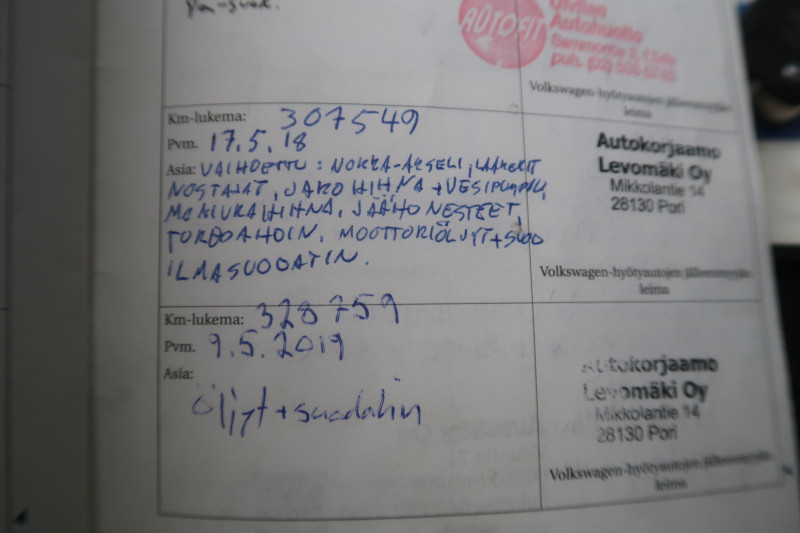 AUTOFIT
Ulvilan
Autohuolto
Volkswagen-hyötyautojen jälleenmyyjän
leima
Km-lukema: 307549
Pvm. 17.5.18
Asia: VAIHDETTU: NOKKA-AKSELI, LAAKERIT
NOSTAJAT, JAKOHIHNA + VESIPUMPPU,
MONIURAHIHNA, JÄÄHDNESTEET,
TURBOAHDIN. MOOTTORIÖLJYT+SUOD
ILMASUODATIN.
Autokorjaamo
Levomäki Oy
Mikkolantie 14
28130 Pori
Volkswagen-hyötyautojen jälleenmyyjän
leima
Km-lukema: 328759
Pvm. 9.5.2019
Asia:
Öljyt + suodatin
Autokorjaamo
Levomäki Oy
Mikkolantie 14
28130 Pori
Volkswagen-hyötyautojen jälleenmyyjän
leima